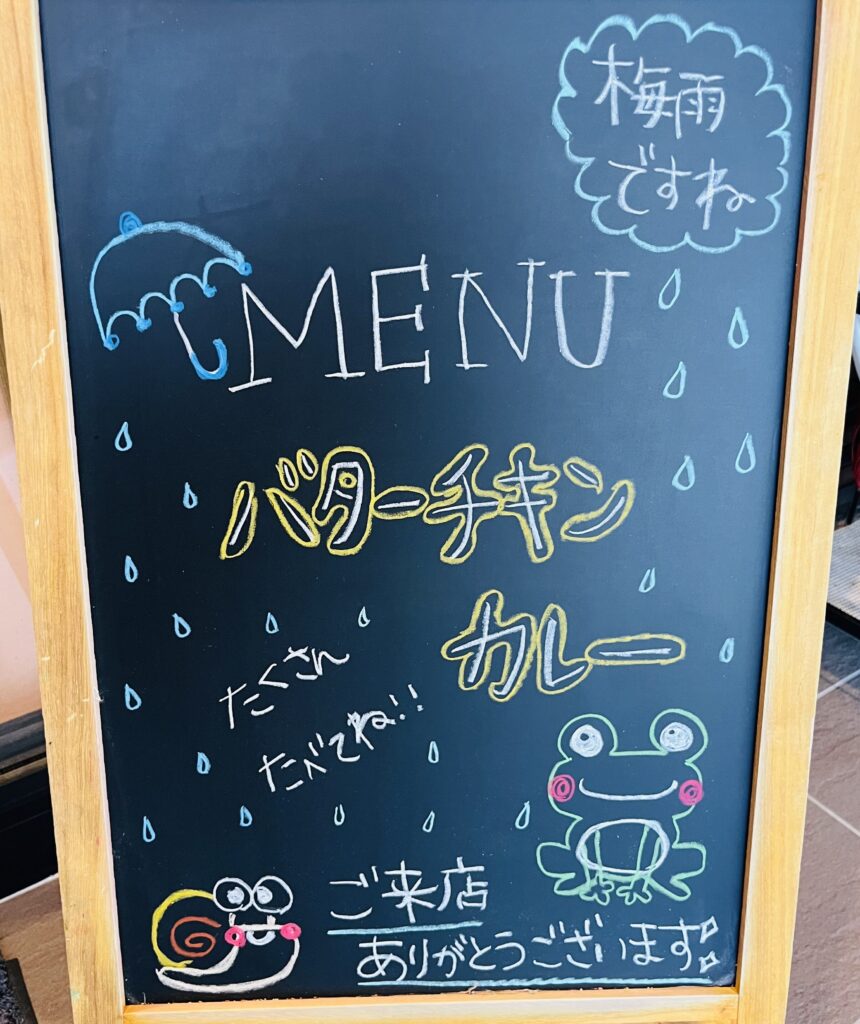 梅雨
ですね
MENU
バターチキン
カレー
たくさん
たべてね!!
ご来店
ありがとうございます